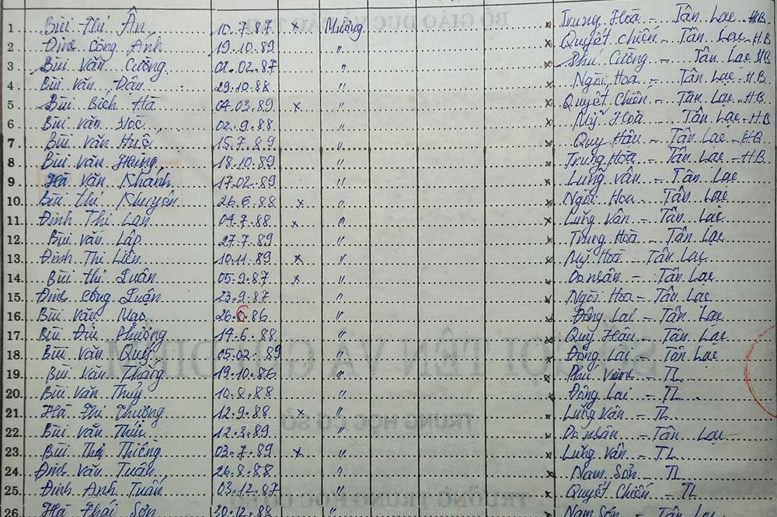 1 Bùi Thị Ân 10.7.87 x Mường x Trung Hoà - Tân Lạc - H.B
2 Đinh Công Anh 19.10.89 " x Quyết Chiến - Tân Lạc - H.B
3 Bùi Văn Cường 02.02.87 " x Phú Cường - Tân Lạc - H.B
4 Bùi Văn Dậu 29.10.88 " x Ngòi Hoa - Tân Lạc - H.B
5 Bùi Bích Hà 04.03.89 x " x Quyết Chiến - Tân Lạc - H.B
6 Bùi Văn 02.9.88 " x Mỹ Hoà - Tân Lạc - H.B
7 Bùi Văn Huệ 15.7.89 " x Quy Hậu - Tân Lạc - H.B
8 Bùi Văn Hưng 18.10.89 " x Trung Hoà - Tân Lạc - H.B
9 Hà Văn Khánh 17.02.89 " x Lũng Vân - Tân Lạc
10 Bùi Thị Khuyên 26.6.88 x " x Ngòi Hoa - Tân Lạc
11 Đinh Thị Lan 04.7.88 x " x Lũng Vân - Tân Lạc
12 Bùi Văn Lập 27.7.89 " x Trung Hoà - Tân Lạc
13 Đinh Thị Liên 10.11.89 x " x Mỹ Hoà - Tân Lạc
14 Bùi Thị Luân 05.9.87 x " x Do Nhân - Tân Lạc
15 Đinh Công Luận 23.9.87 " x Ngòi Hoa - Tân Lạc
16 Bùi Văn 26.6.86 " x Đông Lai - Tân Lạc
17 Bùi Đức Phương 14.6.88 " x Quy Hậu - Tân Lạc
18 Bùi Văn Quý 05.02.89 " x Đông Lai - Tân Lạc
19 Bùi Văn Thắng 19.10.86 " x Phú Vinh - TL
20 Bùi Văn Thuỷ 10.8.88 " x Đông Lai - TL
21 Hà Thị Thương 12.9.88 x " x Lũng Vân - TL
22 Bùi Văn Thức 12.3.89 " x Do Nhân - Tân Lạc
23 Bùi Thị Thiêng 03.7.89 x " x Lũng Vân - TL
24 Đinh Văn Tuân 26.8.88 " x Nam Sơn - TL
25 Đinh Anh Tuấn 03.12.87 " x Quyết Chiến - TL
26 Hà Thái Sơn 30.12.88 " x Nam Sơn - Tân Lạc